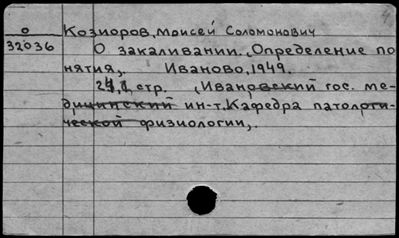 о Козиоров, Моисей Соломонович
32036 О закаливании. Определение по
нятия,. Иваново, 1949.
стр. (Ивановский гос. ме-
дицинский ин-т. Кафедра патологи-
ческой физиологии,.